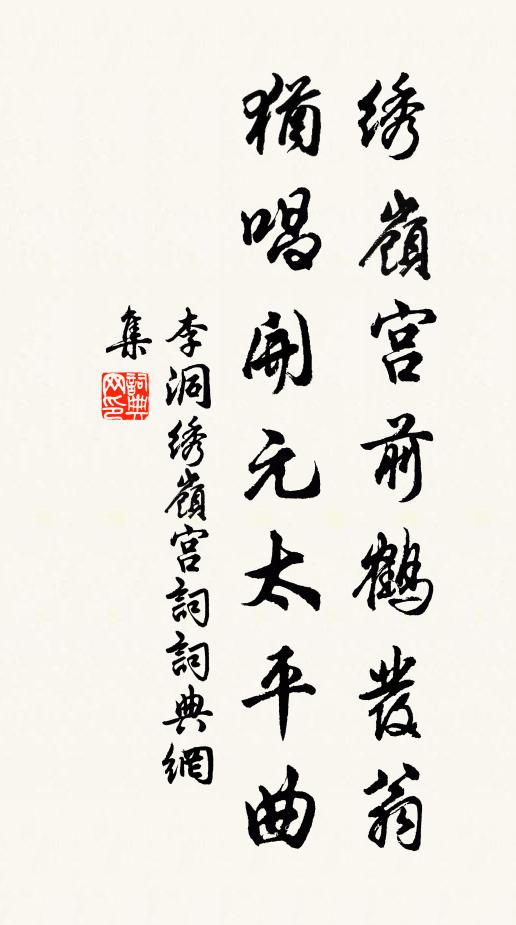 绣嶺宫前鶴發翁
猶唱開元太平曲
李洞绣嶺宫詞詞典網
集
詞典網印